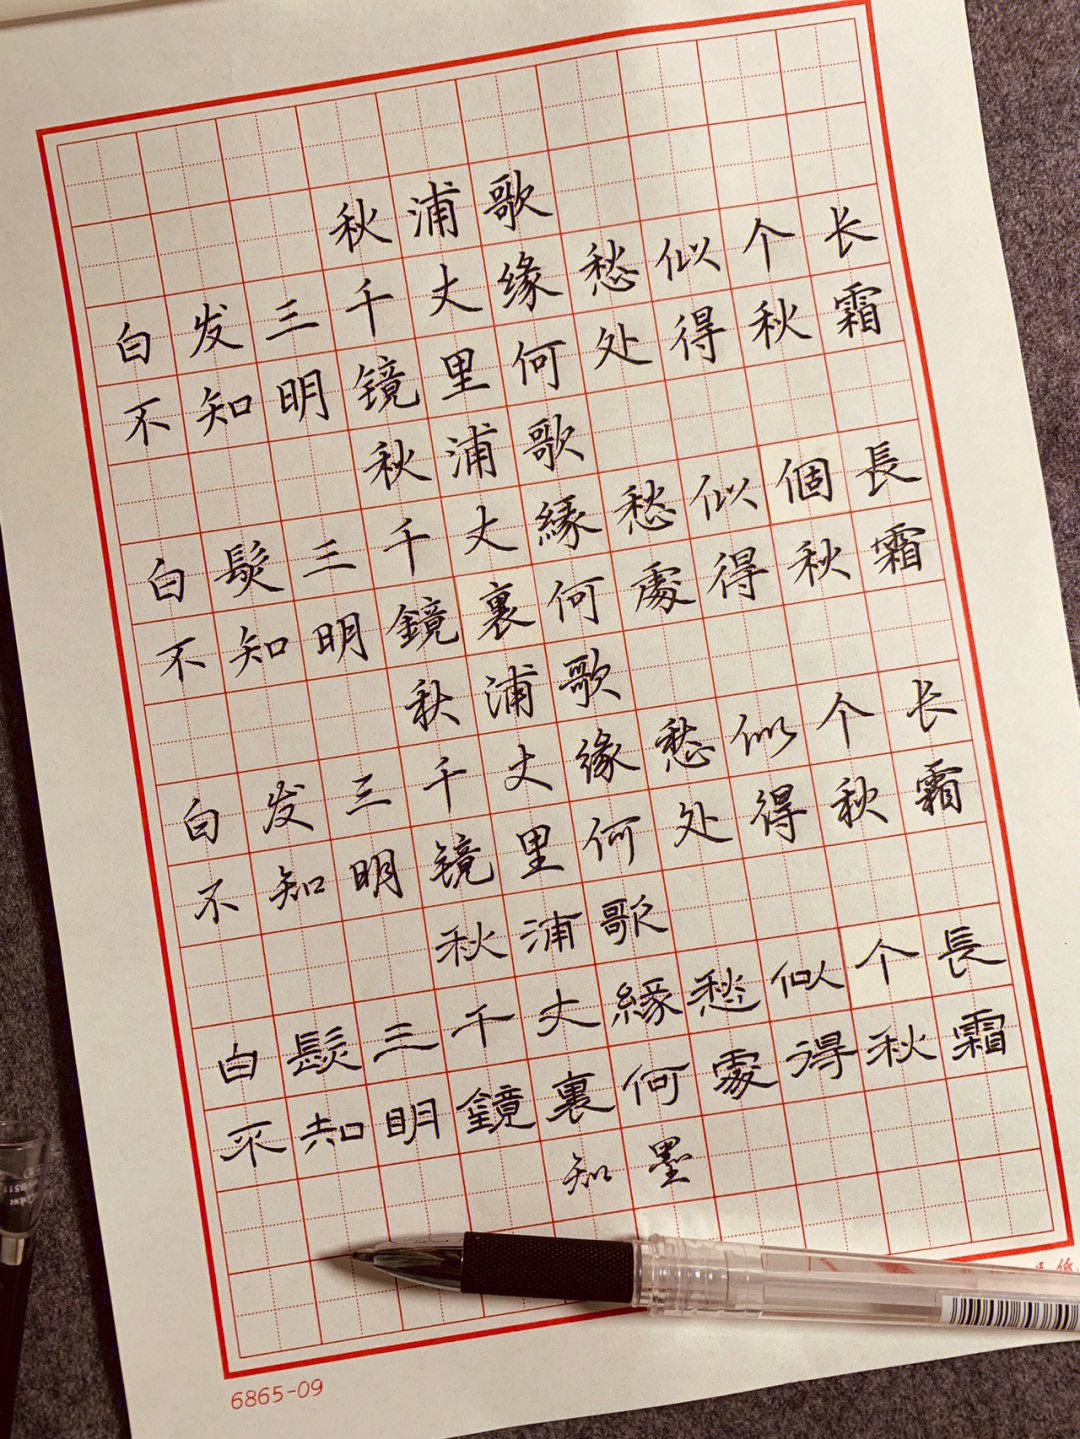 秋浦歌
白发三千丈缘愁似个长
不知明镜里何处得秋霜
秋浦歌
白髮三千丈緣愁似個長
不知明鏡裏何處得秋霜
秋浦歌
白发三千丈缘愁似个长
不知明镜里何处得秋霜
秋浦歌
白髮三千丈緣愁似个長
不知明鏡裏何處得秋霜
知墨
6865-09